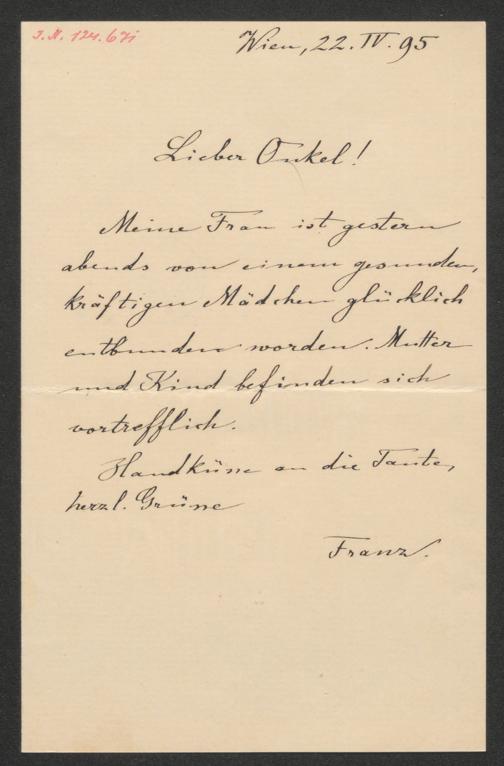 J.N. 124.671
Wien, 22. IV. 95
Lieber Onkel!
Meine Frau ist gestern
abends von einem gesunden,
kräftigen Mädchen glücklich
entbunden worden. Mutter
und Kind befinden sich
vortrefflich.
Handküsse an die Tante,
herzl. Grüsse
Franz.